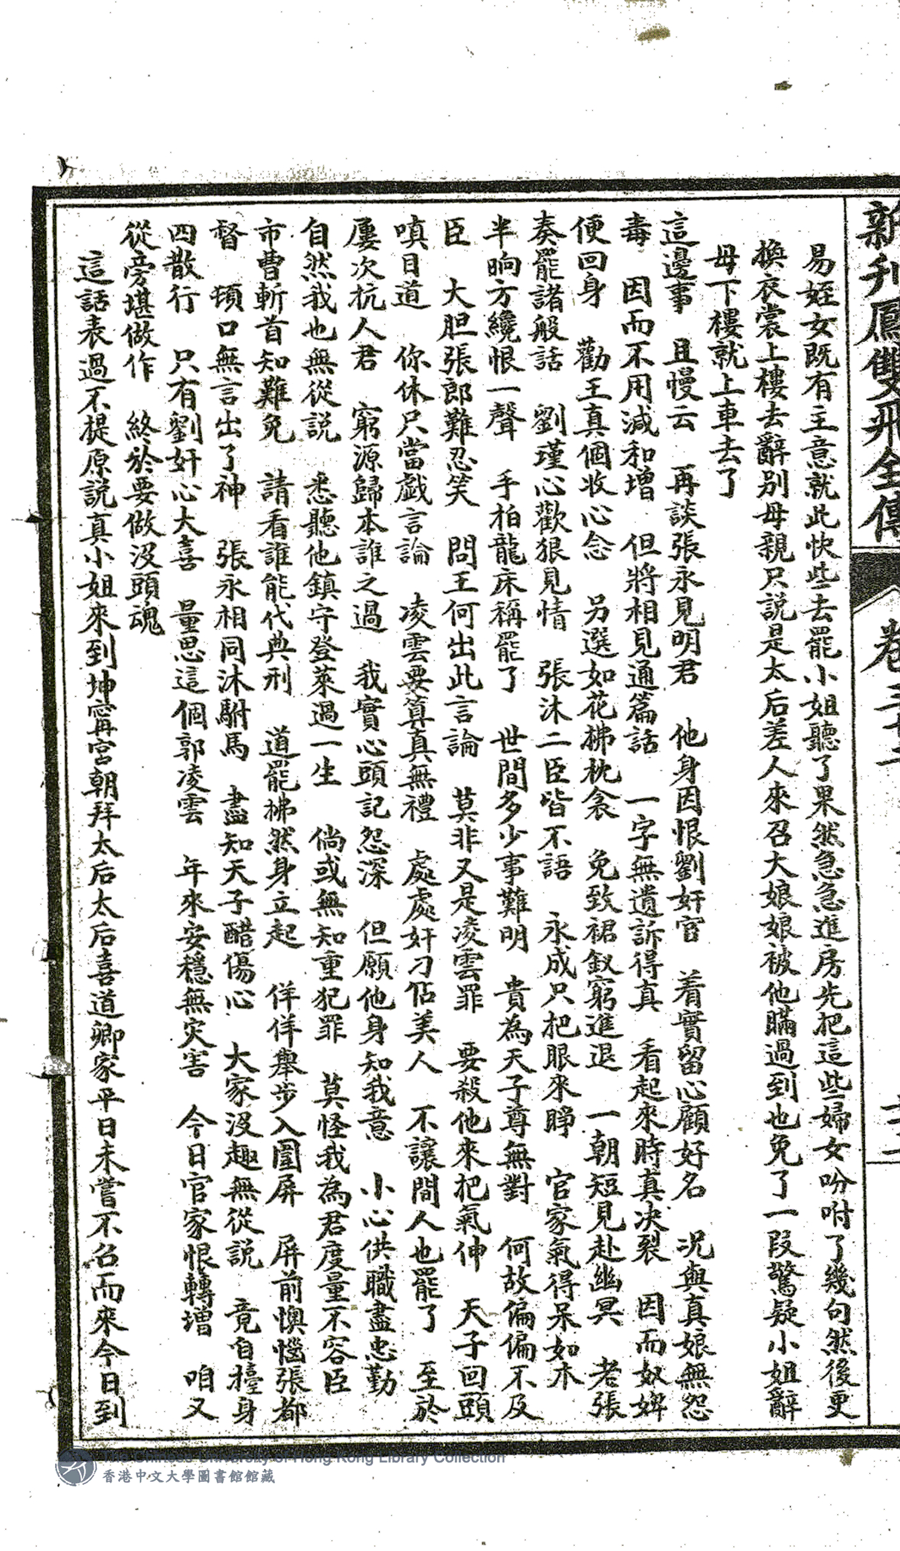 新刊鳳雙飛全傳
卷三十二
易姪女既有主意就此快些去罷小姐聽了果然急急進房先把這些婦女吩咐了幾句然後更
換衣裳上樓去辭別母親只說是太后差人來召大娘娘被他瞞過到也免了一段驚疑小姐辭
母下樓就上車去了
這邊事　且慢云　再談張永見明君　他身因恨劉奸官　着實留心顧好名　况與真娘無怨
毒　因而不用減和增　但將相見通篇話　一字無遺訴得真　看起來時真决裂　因而奴婢
便回身　勸王真個收心念　另選如花拂枕衾　免致裙釵窮進退　一朝短見赴幽冥　老張
奏罷諸般話　劉瑾心歡狠見情　張沐二臣皆不語　永成只把眼來睜　官家氣得呆如木
半晌方纔恨一聲　手柏龍床稱罷了　世間多少事難明　貴為天子尊無對　何故偏偏不及
臣　大胆張郎難忍笑　問王何出此言論　莫非又是凌雲罪　要殺他來把氣伸　天子回頭
嗔目道　你休只當戲言論　凌雲要算真無禮　處處奸刁佔美人　不讓間人也罷了　至於
屢次抗人君　窮源歸本誰之過　我實心頭記怨深　但願他身知我意　小心供職盡忠勤
自然我也無從說　悉聽他鎮守登萊過一生　倘或無知重犯罪　莫怪我為君度量不容臣
市曹斬首知難免　請看誰能代典刑　道罷拂然身立起　佯佯舉步入圍屏　屏前懊惱張都
督　頓口無言出了神　張永相同沐駙馬　盡知天子醋傷心　大家沒趣無從說　竟自擡身
四散行　只有劉奸心大喜　量思這個郭凌雲　年來安穩無灾害　今日官家恨轉增　咱又
從旁堪做作　終於要做沒頭魂
這話表過不提原說真小姐來到坤甯宮朝拜太后太后喜道卿家平日未嘗不召而來今日到
香港中文大學圖書館館藏